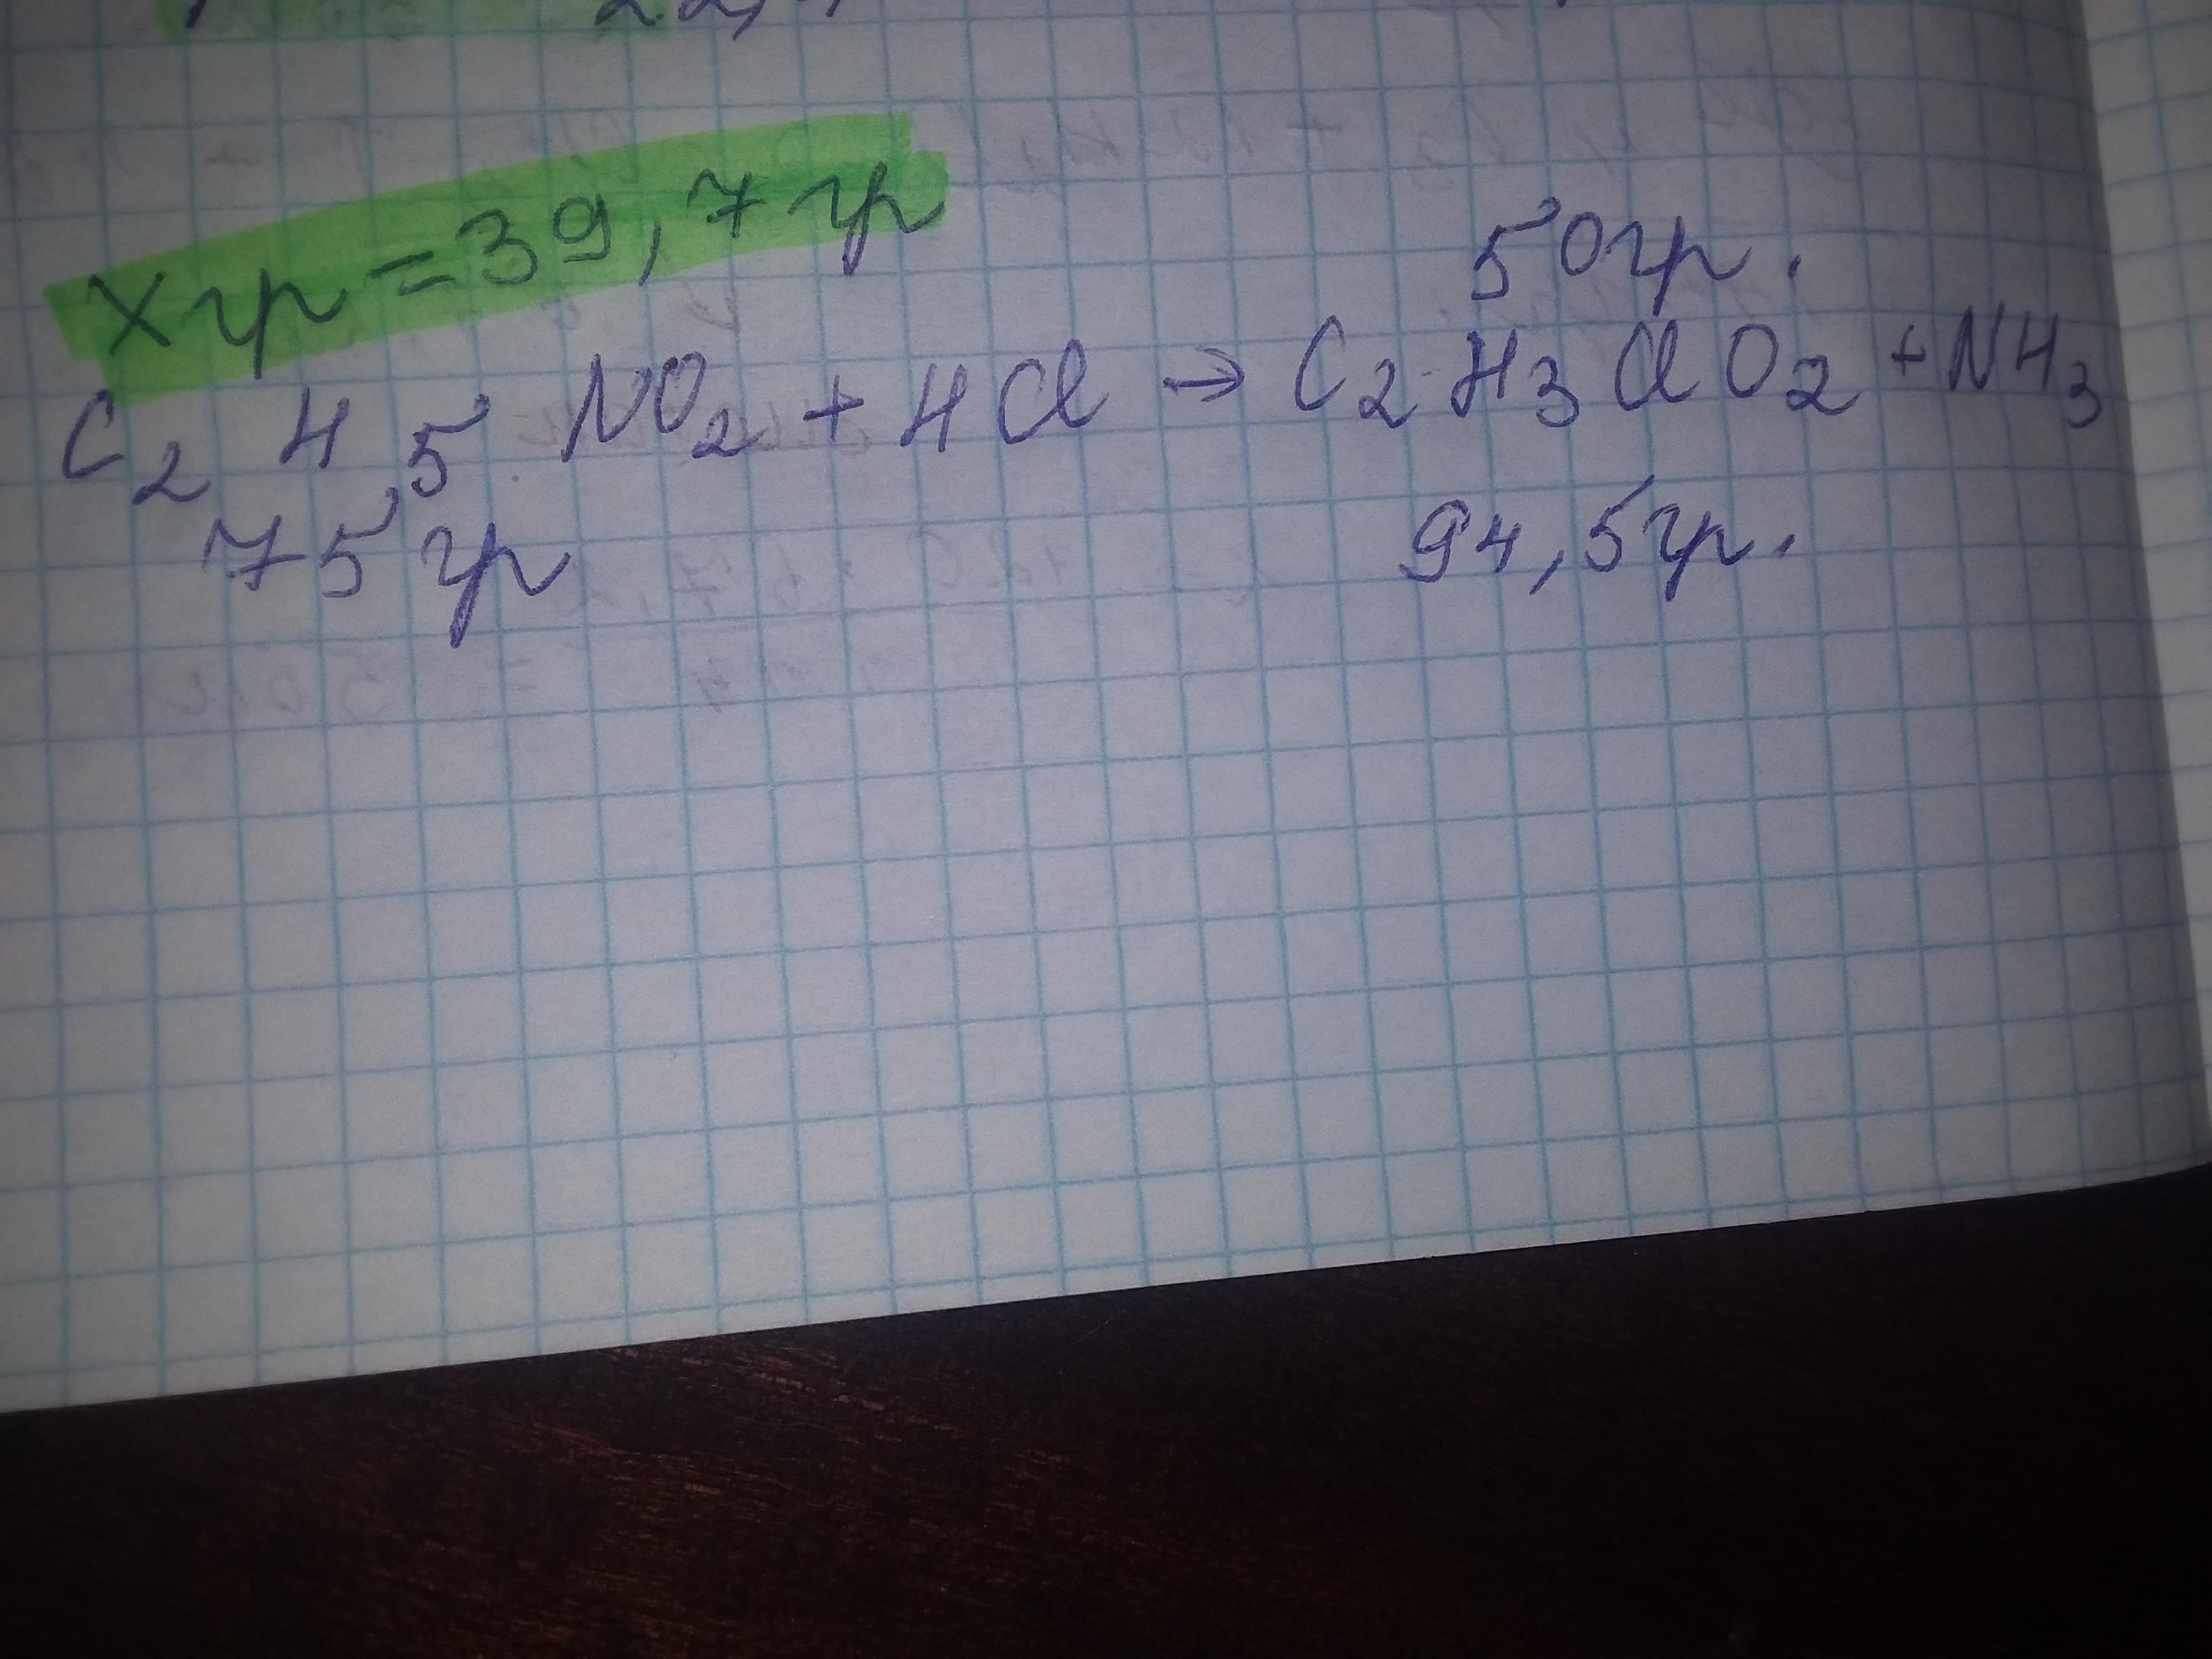 x гр = 39,7 гр
50 гр.
C₂H₅NO₂ + HCl → C₂H₃ClO₂ + NH₃
75 гр 94,5 гр.